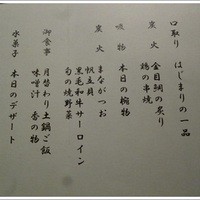 口取り はじまりの一品
窯火 金目鯛の炙り
鶏の串焼
吸物 本日の椀物
窯火 まながつお
帆立貝
黒毛和牛サーロイン
旬の焼野菜
御食事 月替わり土鍋ご飯
味噌汁 香の物
水菓子 本日のデザート